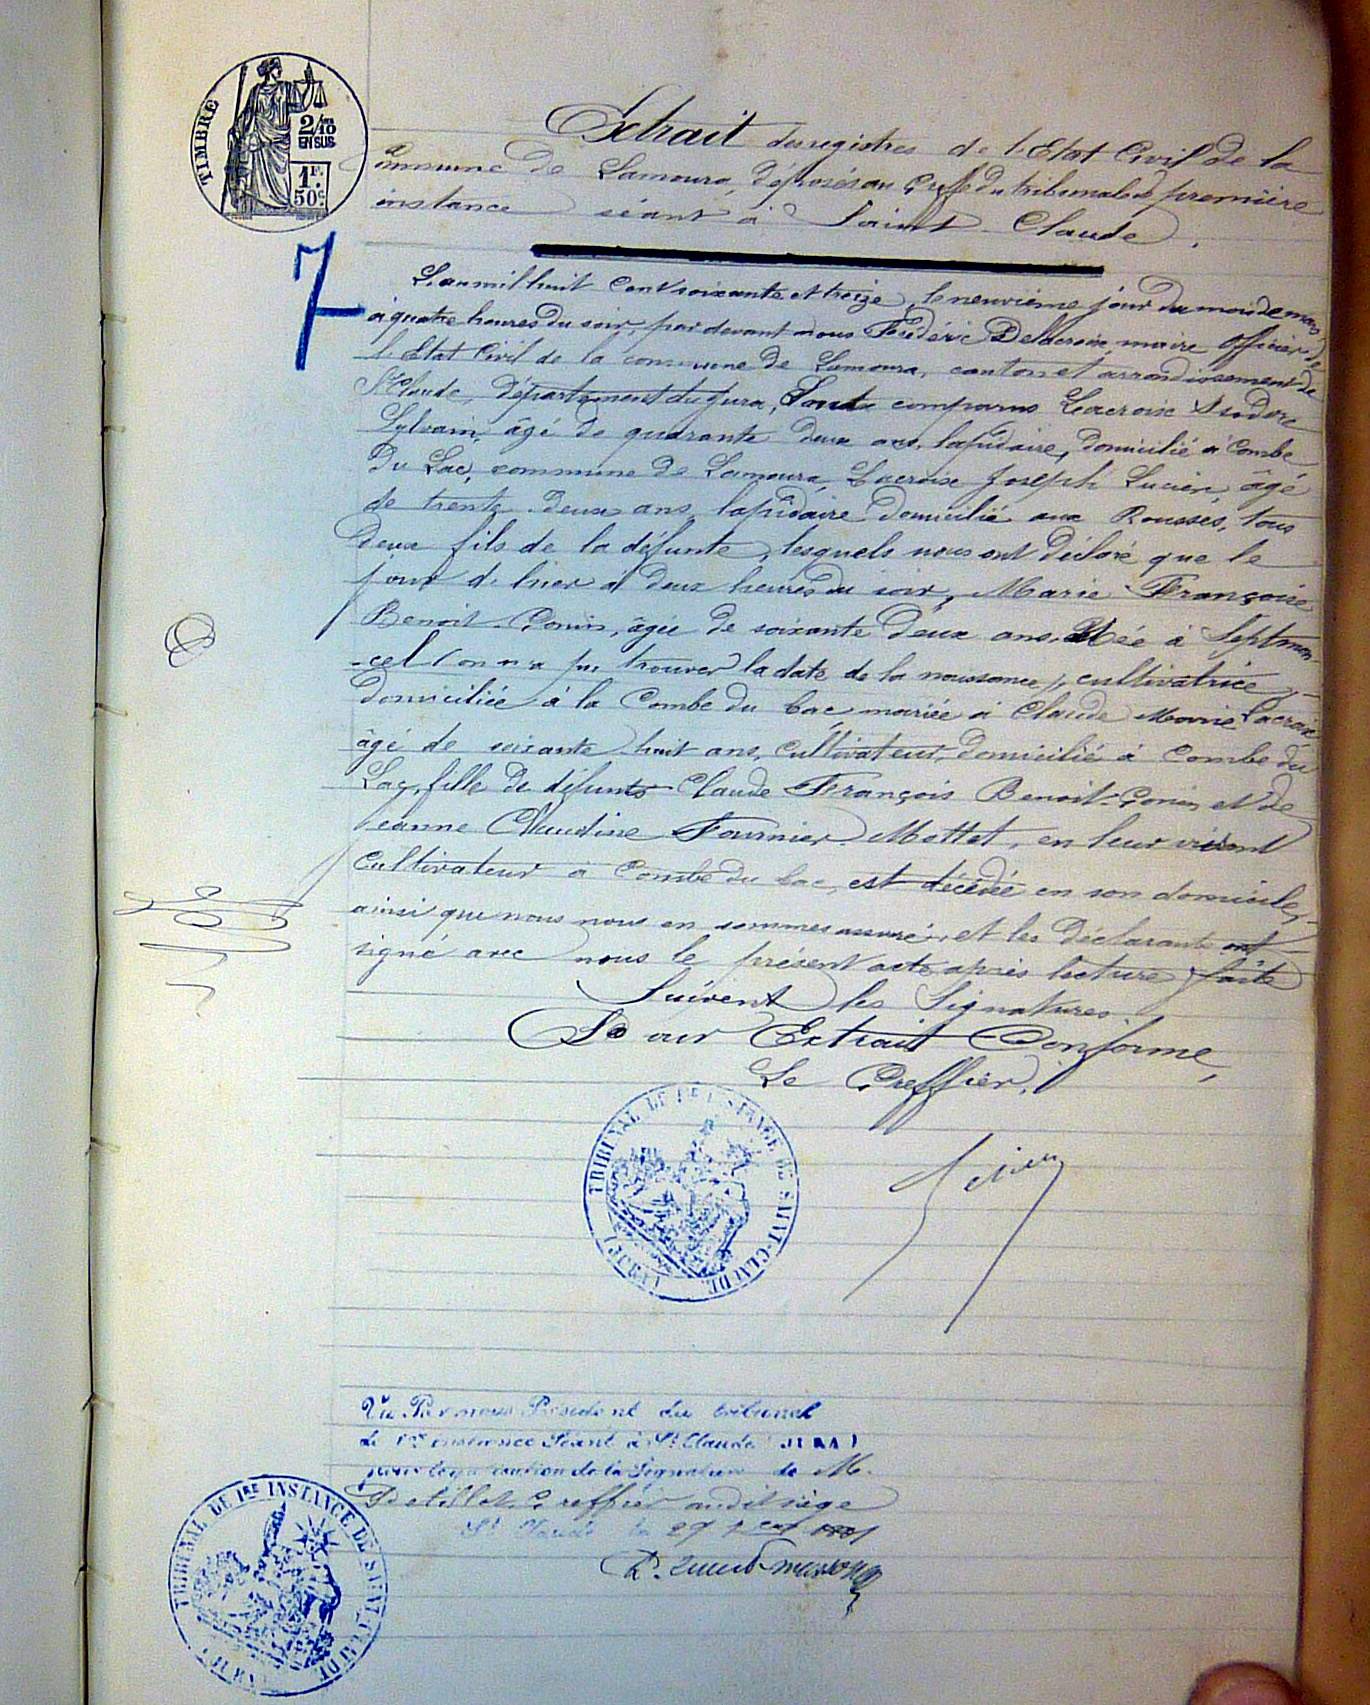 TIMBRE
2/10
EN SUS
1F.
50c.
Extrait des registres de l'Etat Civil de la
commune de Lamoura, déposés au Greffe du tribunal de première
instance séant à Saint-Claude.
7
L'an mil huit cent soixante et treize, le neuvième jour du mois de mars
à quatre heures du soir, par devant nous Frédéric Delacroix, maire officier de
l'Etat Civil de la commune de Lamoura, canton et arrondissement de
St Claude, Département du Jura, Sont comparus Lacroix Isidore
Sylvain, âgé de quarante deux ans, lapidaire, domicilié à Combe
du Lac, commune de Lamoura, Lacroix Joseph Lucien, âgé
de trente deux ans, lapidaire domicilié aux Rousses, tous
deux fils de la défunte, lesquels nous ont déclaré que le
jour de hier à deux heures du soir, Marie Françoise
Benoit-Gonin, âgée de soixante deux ans, Née à Septmon-
-cel (on n'a pu trouver la date de la naissance), cultivatrice,
domiciliée à la Combe du Lac mariée à Claude Marie Lacroix
âgé de soixante huit ans, cultivateur, domicilié à Combe du
Lac, fille de défunts Claude François Benoit-Gonin et de
Jeanne Claudine Fournier Mottet, en leur vivant
Cultivateur à Combe du Lac, est décédée en son domicile,
ainsi que nous nous en sommes assuré, et les Déclarants ont
signé avec nous le présent acte après lecture faite
Suivent les Signatures
Pour Extrait Conforme,
Le Greffier,
TRIBUNAL DE 1RE INSTANCE DE SAINT-CLAUDE (JURA)
Vu Par nous Président du tribunal
de 1re instance Séant à St Claude (JURA)
pour légalisation de la Signature de M.
Petillot Greffier audit siège
St Claude le 29
TRIBUNAL DE 1RE INSTANCE DE SAINT-CLAUDE (JURA)